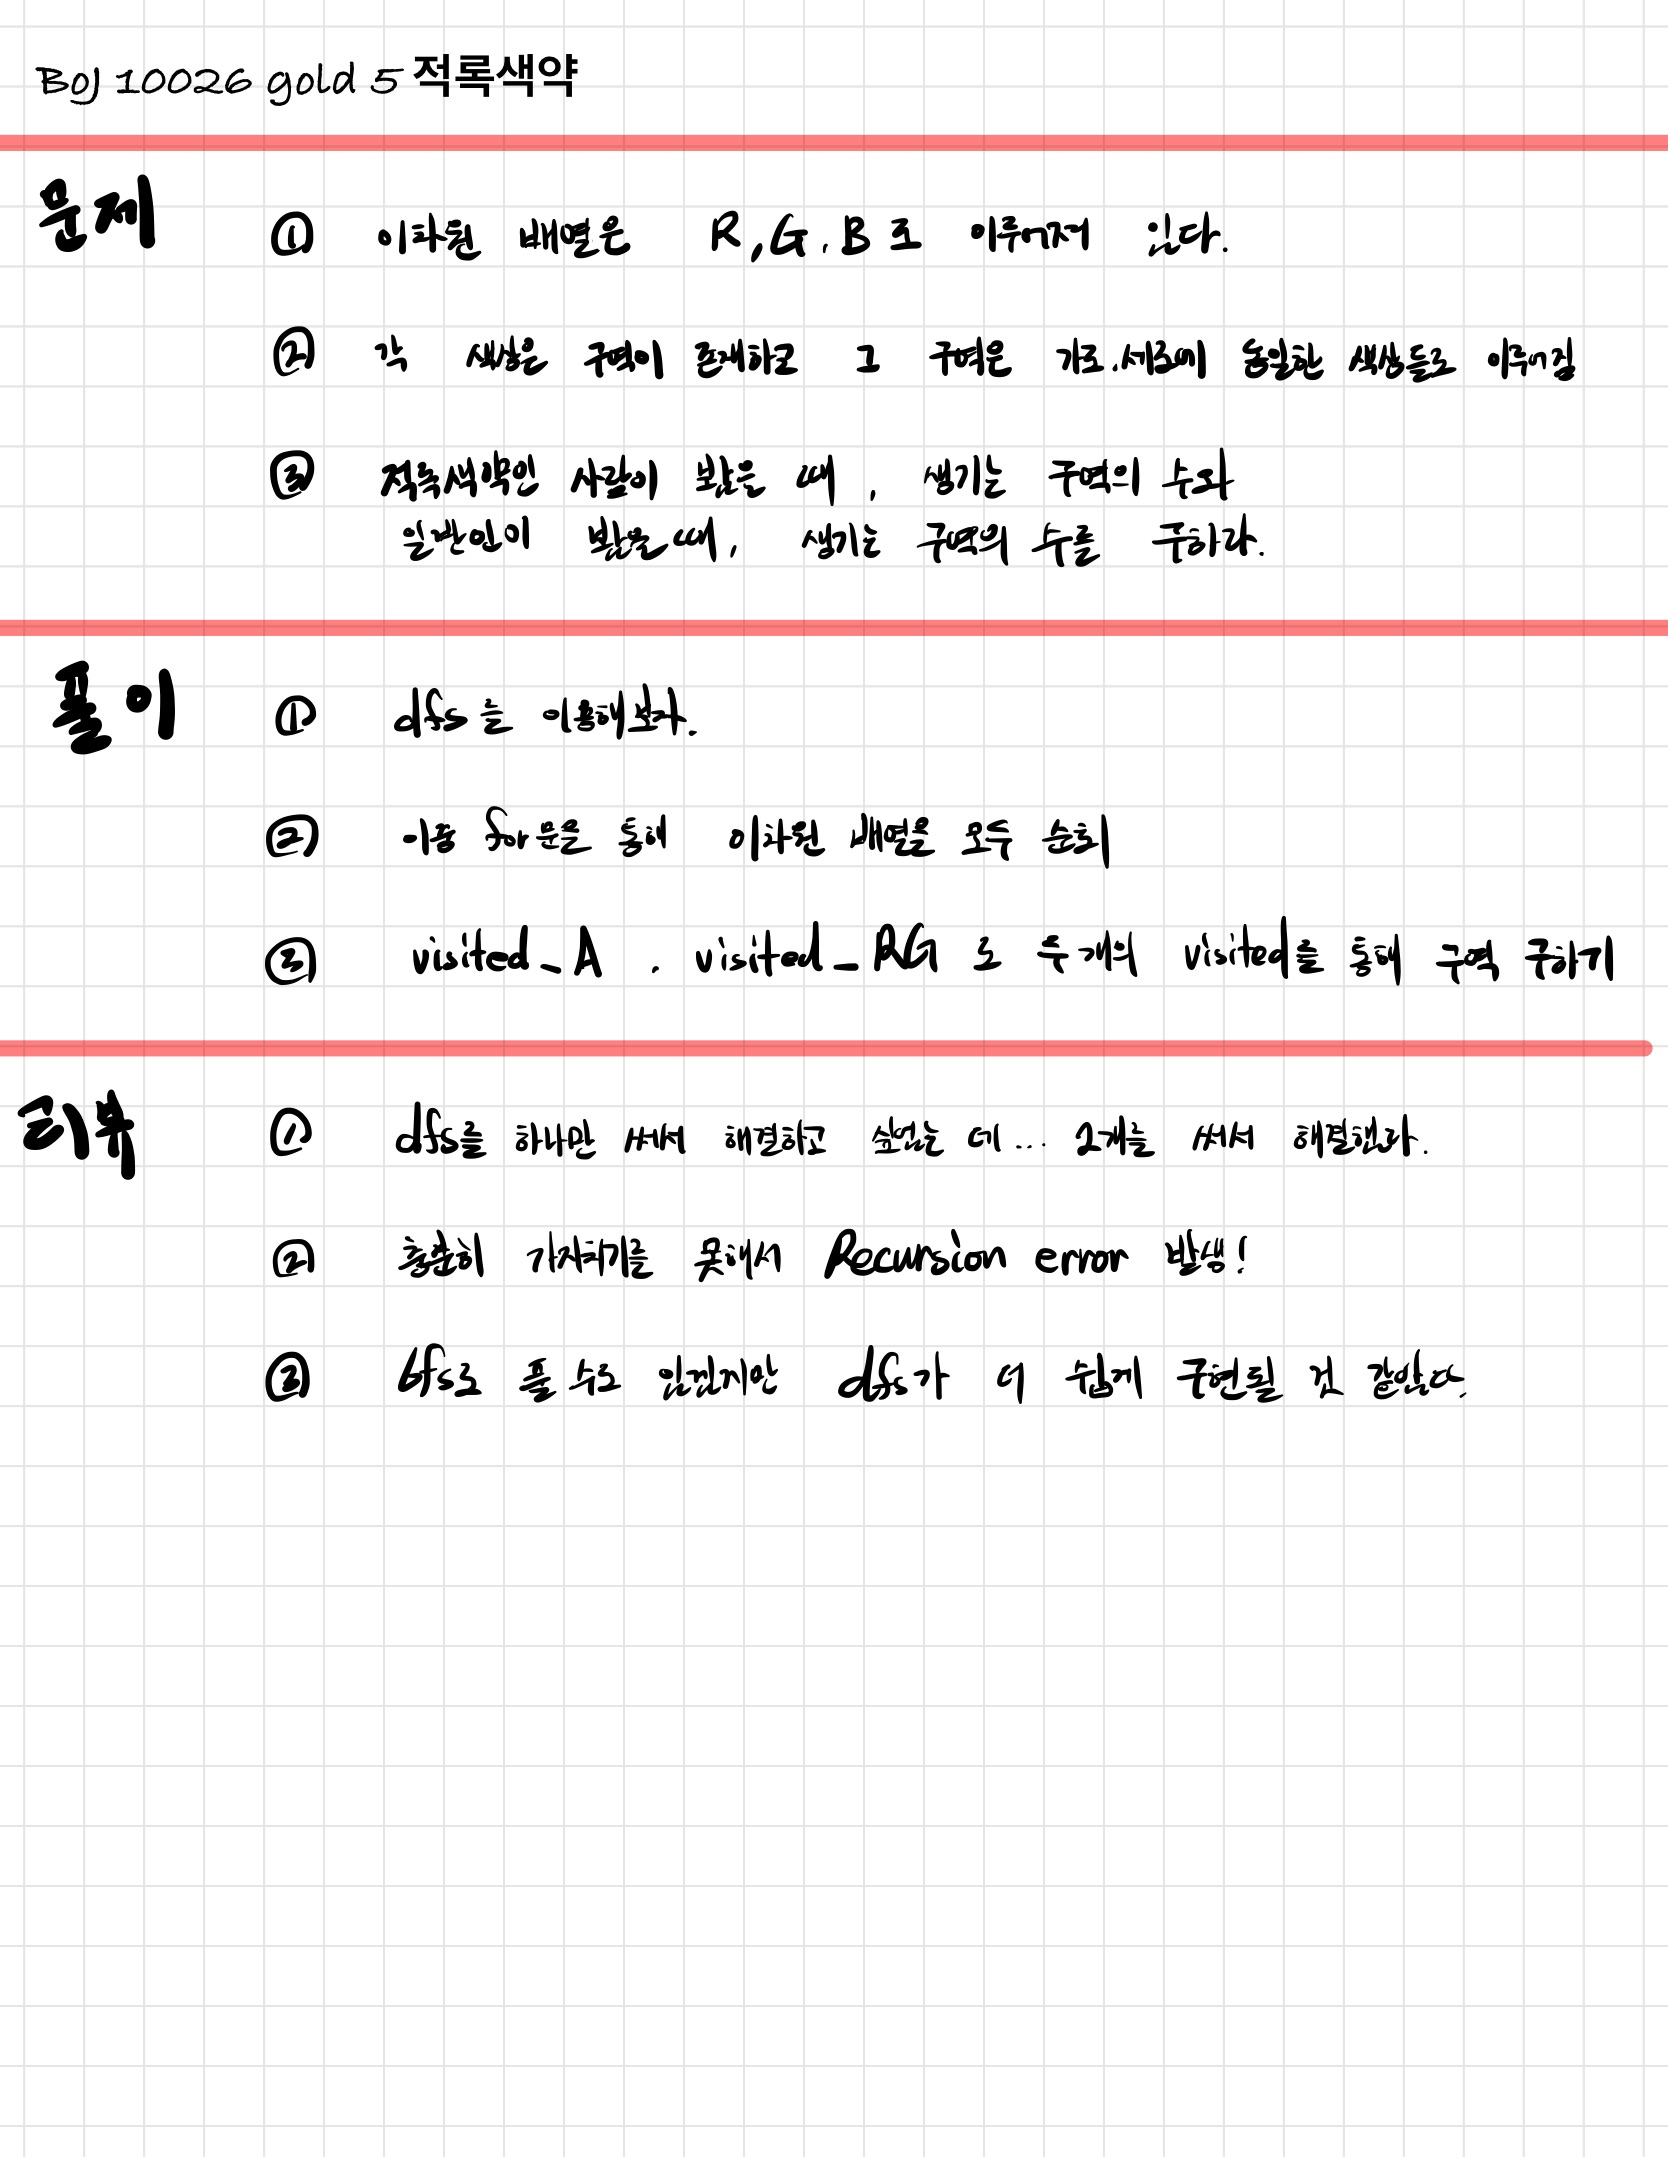 BOJ 10026 gold 5 적록색약
문제
① 이차원 배열은 R, G, B로 이루어져 있다.
② 각 색상은 구역이 존재하고 그 구역은 가로, 세로에 동일한 색상들로 이루어짐
③ 적록색약인 사람이 봤을 때, 생기는 구역의 수와
일반인이 봤을 때, 생기는 구역의 수를 구하라.
풀이
① dfs를 이용해보자.
② 이중 for문을 통해 이차원 배열을 모두 순회
③ visited_A, visited_RG로 두 개의 visited를 통해 구역 구하기
리뷰
① dfs를 하나만 써서 해결하고 싶었는데... 2개를 써서 해결했다.
② 충분히 가지치기를 못해서 Recursion error 발생!
③ bfs로 풀 수도 있겠지만 dfs가 더 쉽게 구현될 것 같았다.